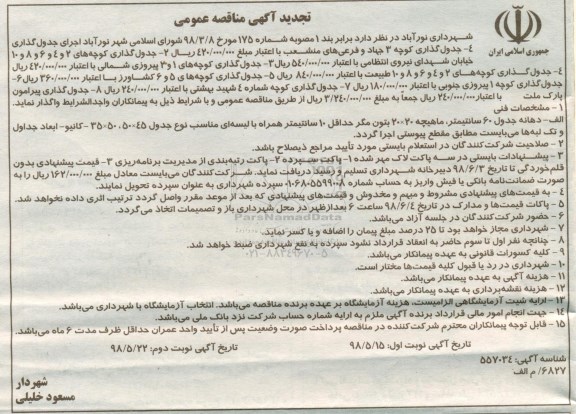 تجدید آگهی مناقصه عمومی
جمهوری اسلامی ایران
شهرداری نورآباد در نظر دارد برابر بند ۱ مصوبه شماره ۱۷۵ مورخ ۹۸/۳/۸ شورای اسلامی شهر نورآباد اجرای جدول‌گذاری
۱- جدول‌گذاری کوچه ۳ جهاد و فرعی‌های منشعب با اعتبار مبلغ ۴۲۰/۰۰۰/۰۰۰ ریال ۲- جدول‌گذاری کوچه‌های ۲ و ۴ و ۶ و ۸ و ۱۰
خیابان شهدای نیروی انتظامی با اعتبار ۵۴۰/۰۰۰/۰۰۰ ریال ۳- جدول‌گذاری کوچه‌های ۱ و ۳ پیروزی شمالی با اعتبار ۴۲۰/۰۰۰/۰۰۰ ریال
۴- جدول‌گذاری کوچه‌های ۲ و ۴ و ۶ و ۸ و ۱۰ طبیعت با اعتبار ۸۴۰/۰۰۰/۰۰۰ ریال ۵- جدول‌گذاری کوچه های ۵ و ۶ کشاورز با اعتبار ۳۶۰/۰۰۰/۰۰۰ ریال ۶-
جدول‌گذاری کوچه ۱ پیروزی جنوبی با اعتبار ۱۸۰/۰۰۰/۰۰۰ ریال ۷- جدول‌گذاری کوچه شماره ۴ شهید بهشتی با اعتبار ۲۴۰/۰۰۰/۰۰۰ ریال ۸- جدول‌گذاری پیرامون
پارک ملت با اعتبار ۲۴۰/۰۰۰/۰۰۰ ریال جمعاً به مبلغ ۳/۲۴۰/۰۰۰/۰۰۰ ریال از طریق مناقصه عمومی و با شرایط ذیل به پیمانکاران واجدالشرایط واگذار نماید.
۱- مشخصات فنی
الف- دهانه جدول ۶۰ سانتیمتر، ماهیچه ۲۰×۲۰ بتون مگر حداقل ۱۰ سانتیمتر همراه با لیسه‌ای مناسب نوع جدول ۵۰×۵۰×۳۵ - کانیو- ابعاد جداول
و تک لبه‌ها می‌بایست مطابق مقطع پیوستی اجرا گردد.
۲- صلاحیت شرکت‌کنندگان در استعلام بایستی مورد تأیید مراجع ذیصلاح باشد.
۳- پیشنهادات بایستی در سه پاکت لاک مهر شده ۱- پاکت سپرده ۲- پاکت رتبه‌بندی از مدیریت برنامه‌ریزی ۳- قیمت پیشنهادی بدون
قلم‌خوردگی تا تاریخ ۹۸/۶/۳ دبیرخانه شهرداری تسلیم و رسید دریافت نماید. شرکت‌کنندگان می‌بایست معادل مبلغ ۱۶۲/۰۰۰/۰۰۰ ریال را به
صورت ضمانت‌نامه بانکی یا فیش واریز به حساب شماره ۰۱۰۶۸۰۵۵۹۹۰۰۸ سپرده شهرداری به عنوان سپرده تحویل نمایند.
۴- به قیمت‌های پیشنهادی مشروط و مبهم و مخدوش و قیمت‌های پیشنهادی که بعد از موعد مقرر واصل گردد ترتیب اثری داده نخواهد شد.
۵- پاکات قیمت‌ها و مدارک در تاریخ ۹۸/۶/۴ ساعت ۶ بعدازظهر در محل شهرداری باز و تصمیمات اتخاذ می‌گردد.
۶- حضور شرکت‌کنندگان در جلسه آزاد می‌باشد.
۷- شهرداری مجاز خواهد بود تا ۲۵ درصد مبلغ پیمان را اضافه و یا کسر نماید.
۸- چنانچه نفر اول تا سوم حاضر به انعقاد قرارداد نشود سپرده به نفع شهرداری ضبط خواهد شد.
۹- کلیه کسورات قانونی به عهده پیمانکار می‌باشد.
۱۰- شهرداری در رد یا قبول کلیه قیمت‌ها مختار است.
۱۱- هزینه آگهی به عهده پیمانکار می‌باشد.
۱۲- هزینه نقشه‌برداری به عهده پیمانکار می‌باشد.
۱۳- ارایه شیت آزمایشگاهی الزامیست، هزینه آزمایشگاه بر عهده برنده مناقصه می‌باشد. انتخاب آزمایشگاه با شهرداری می‌باشد.
۱۴- جهت انجام امور مالی قرارداد برنده آگهی ملزم به ارایه شماره حساب شرکت نزد بانک ملی می‌باشد.
۱۵- قابل توجه پیمانکاران محترم شرکت‌کننده در مناقصه پرداخت صورت وضعیت پس از تأیید واحد عمران حداقل ظرف مدت ۶ ماه می‌باشد.
تاریخ آگهی نوبت اول: ۹۸/۵/۱۵
تاریخ آگهی نوبت دوم: ۹۸/۵/۲۲
شناسه آگهی: ۵۵۷۰۳۴
۶۸۲۷/ م الف
شهردار
مسعود خلیلی
ParsNamadData
۰۲۱-۸۸۳۴۹۶۷۰-۵